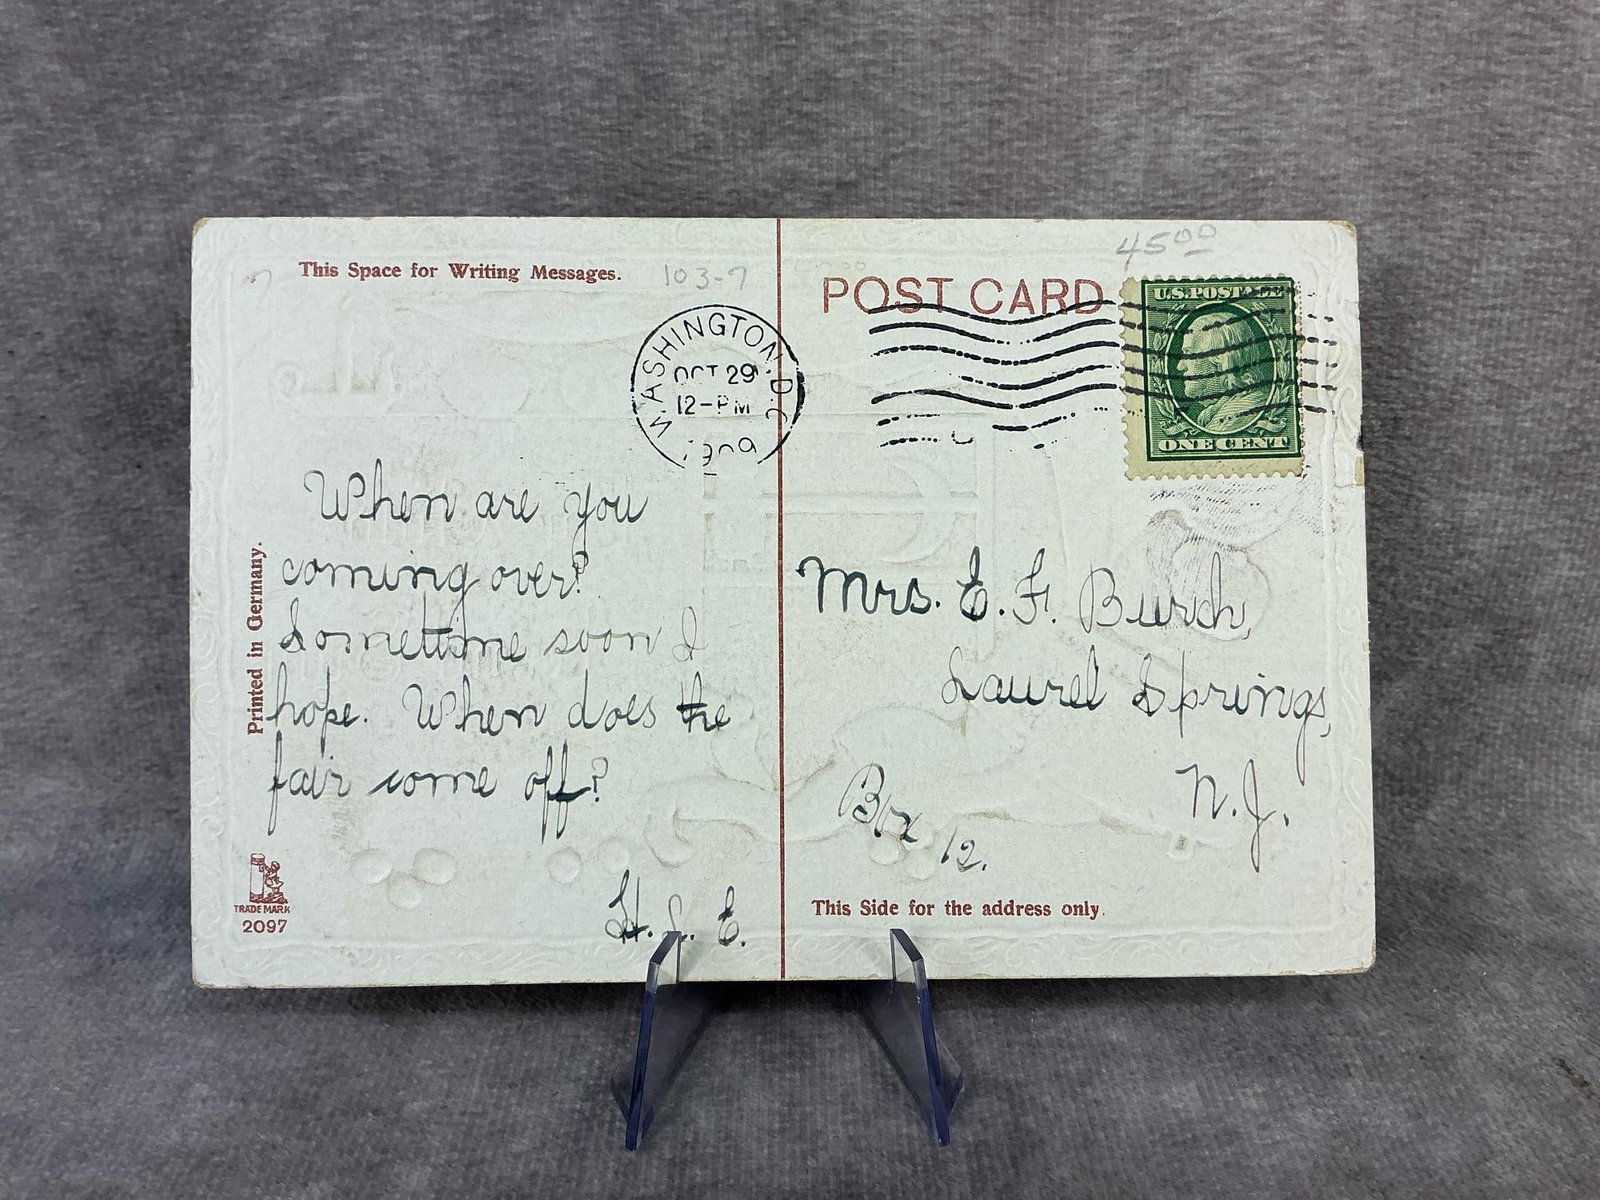 This Space for Writing Messages.
103-7
POST CARD
4500
WASHINGTON, D.C.
OCT 29
12-PM
1909
U.S.POSTAGE
ONE CENT
When are you
coming over?
Sometime soon I
hope. When does the
fair come off?
H. L. E.
Printed in Germany.
TRADE MARK
2097
Mrs. E. F. Burch,
Laurel Springs,
N.J.
Box 12.
This Side for the address only.